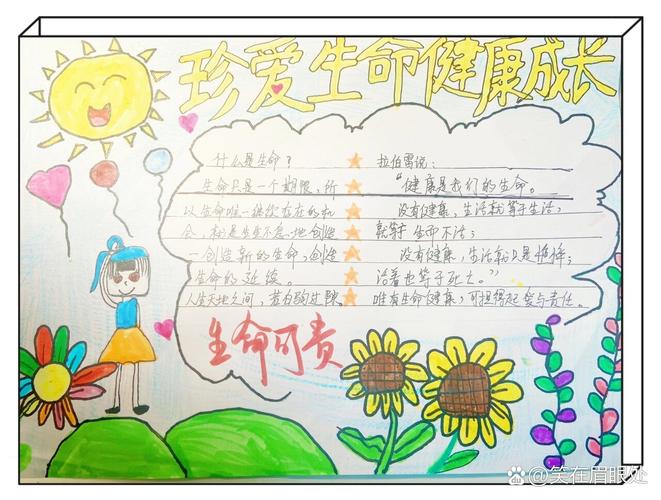 珍爱生命健康成长
什么是生命？
生命只是一个期限，所
以生命唯一继续存在的机
会，和是生生不息地创造
一创造新的生命，创造
生命的延续。
人生天地之间，若白驹过隙
拉伯雷说：
“健康是我们的生命。
没有健康，生活就等于生活，
就等于生而不活；
没有健康，生活就只是憔悴；
活着也等于死亡。”
唯有生命健康，可担得起爱与责任。
生命可贵
du
@笑在眉眼处